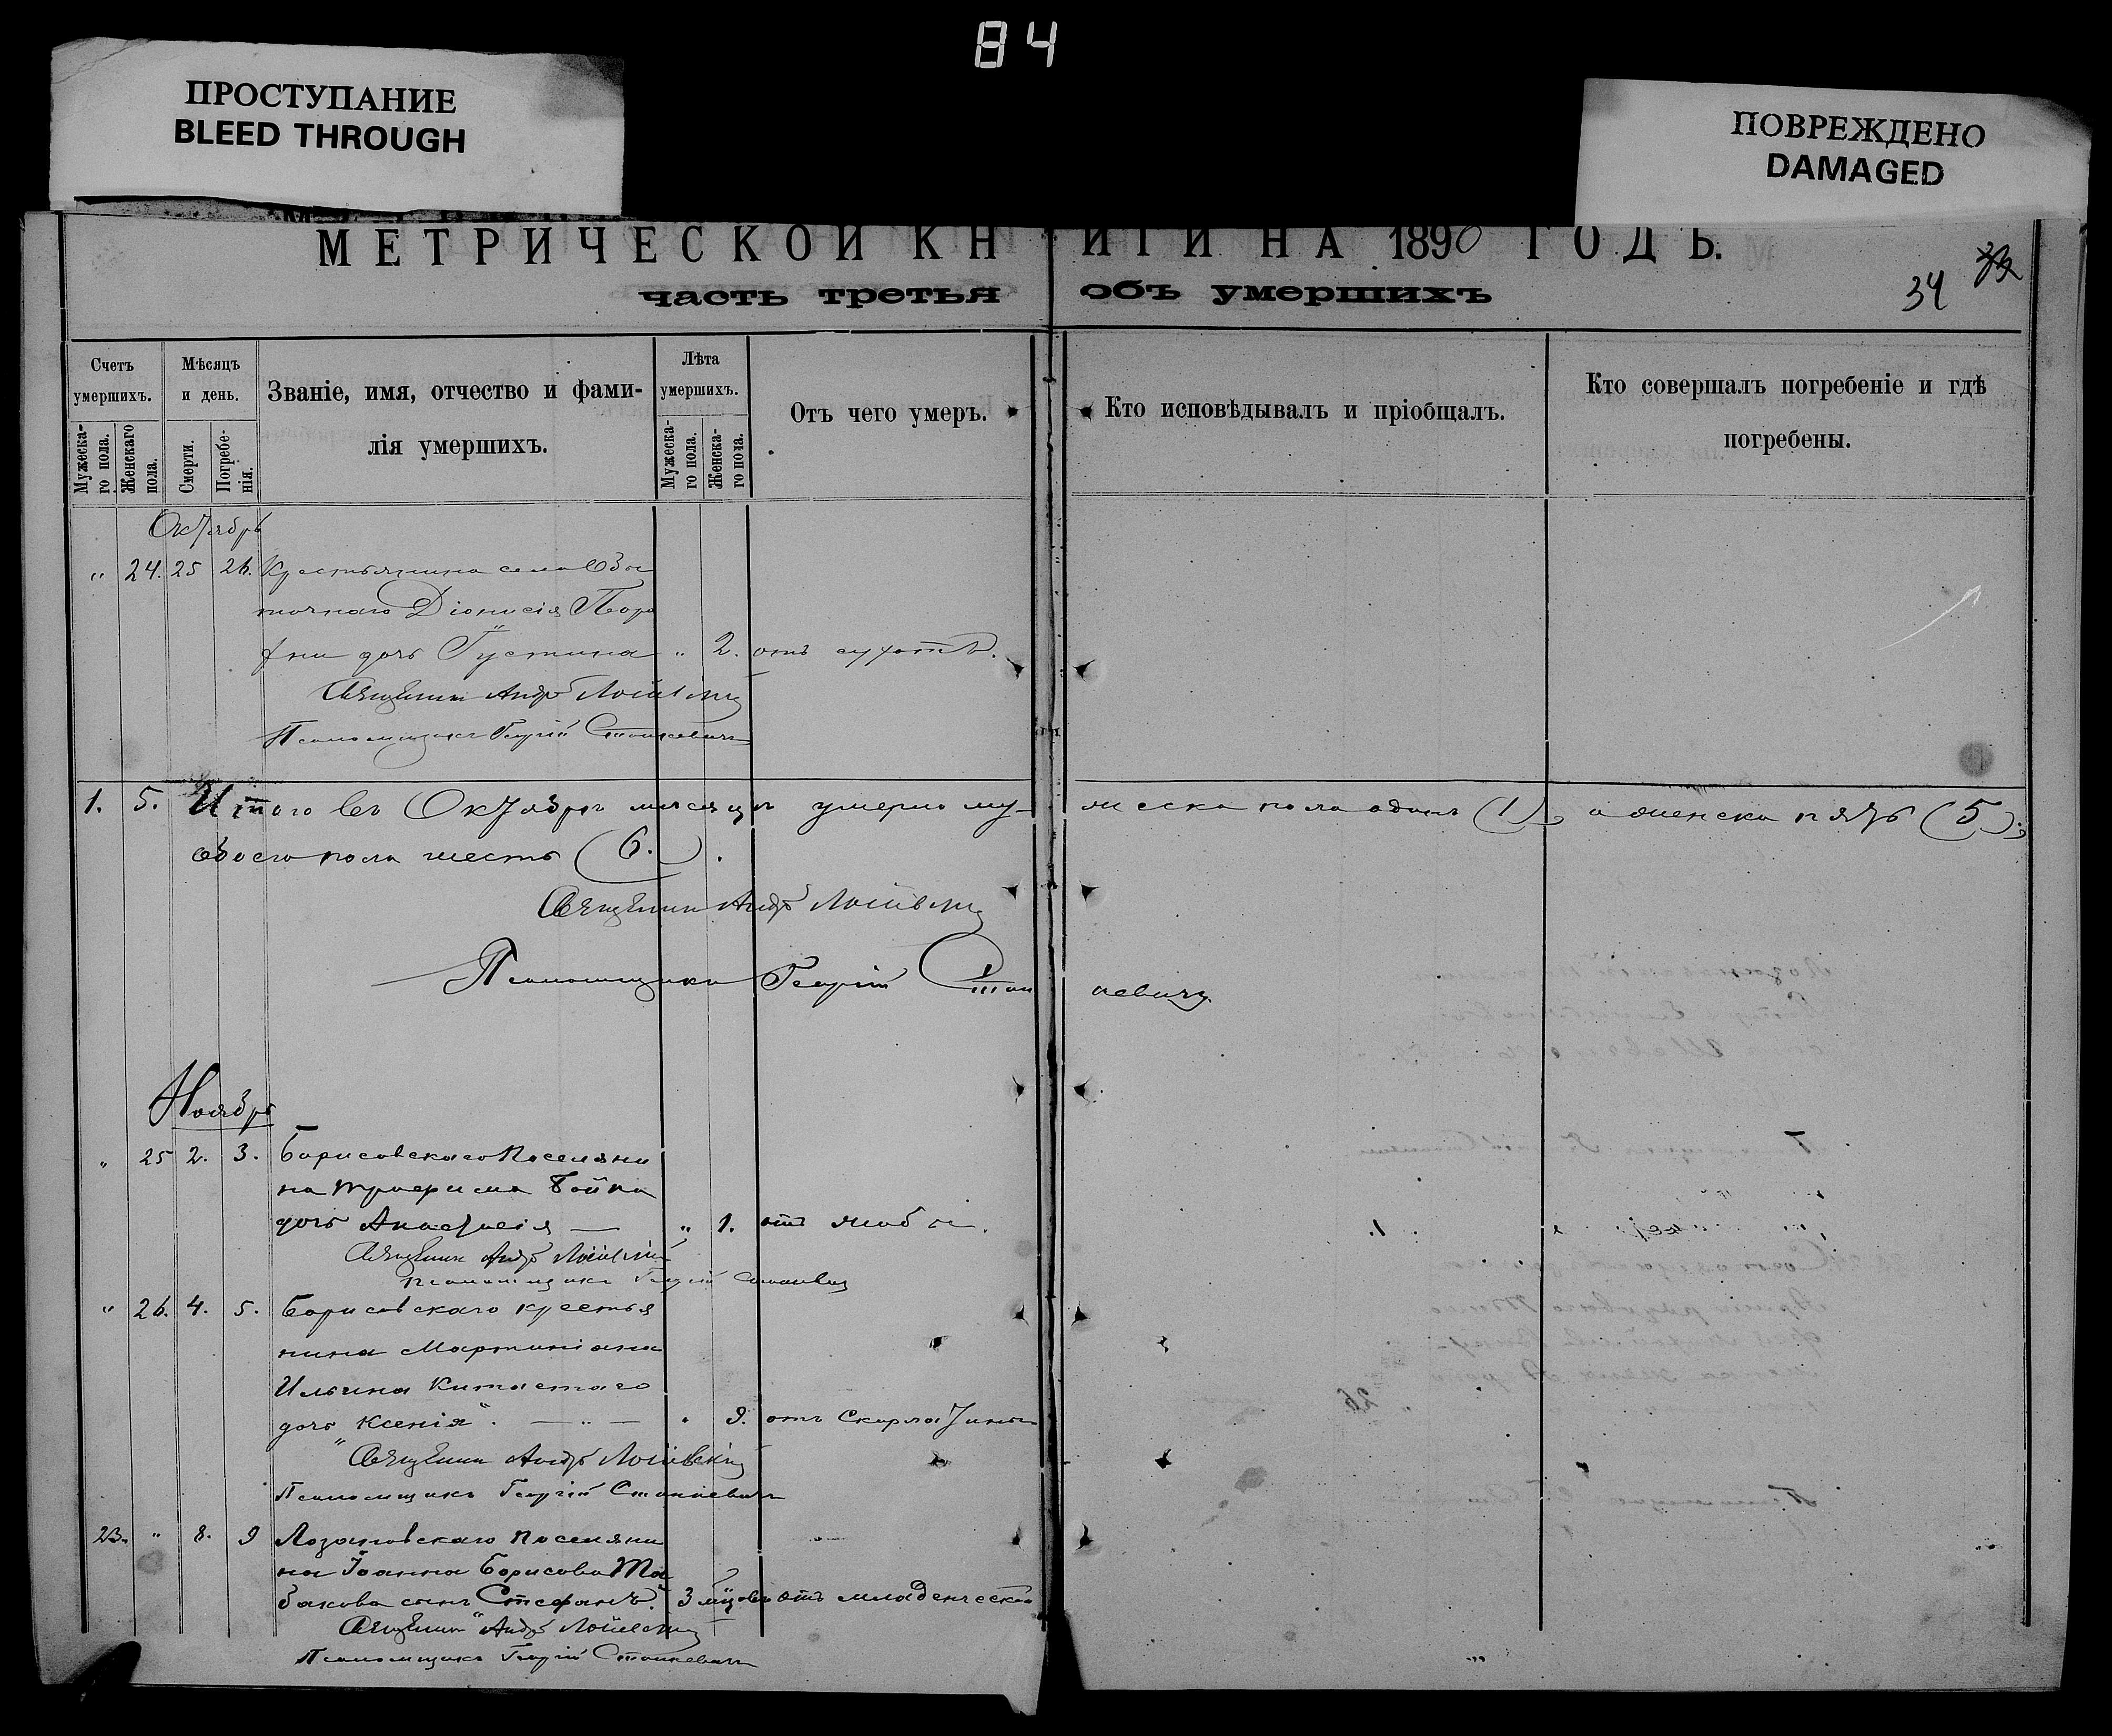 84
ПРОСТУПАНИЕ
BLEED THROUGH
ПОВРЕЖДЕНО
DAMAGED
МЕТРИЧЕСКОЙ КНИГИ НА 1890 ГОДЪ.
часть третья объ умершихъ
34
Счетъ умершихъ.
Мужеска-го пола.
Женскаго пола.
Мѣсяцъ и день.
Смерти.
Погребе-нія.
Званіе, имя, отчество и фами-
лія умершихъ.
Лѣта умершихъ.
Мужеска-го пола.
Женска-го пола.
Отъ чего умеръ.
Кто исповѣдывалъ и пріобщалъ.
Кто совершалъ погребеніе и гдѣ
погребены.
Октябрь
" 24. 25 26. Крестьянина села
Діонисія
дочь Густина " 2. отъ
Священникъ Андр
Псаломщикъ Георгій Станкевичъ
1. 5. Итого въ Октябрѣ мѣсяцѣ умерло му-жеска пола одинъ (1), а женска пять (5).,
обоего пола шесть (6.).
Священникъ Андр
Псаломщикъ Георгій Станкевичъ
Ноябрь
" 25 2. 3. Борисовскаго Поселяни
на Бойка
дочь Анастасія — " 1. отъ
Священникъ Андр
Псаломщикъ Георгій Станкевичъ
" 26. 4. 5. Борисовскаго крестья
нина Мартиніана
Ильина Китастаго
дочь Ксенія". — " — " 9. отъ Скарлатины
Священникъ Андр
Псаломщикъ Георгій Станкевичъ
23. " 8. 9 Лозановскаго поселяни
на Іоанна Борисова Та
бакова сынъ Стефанъ. 3 мѣсяц отъ младенческой
Священникъ Андр
Псаломщикъ Георгій Станкевичъ